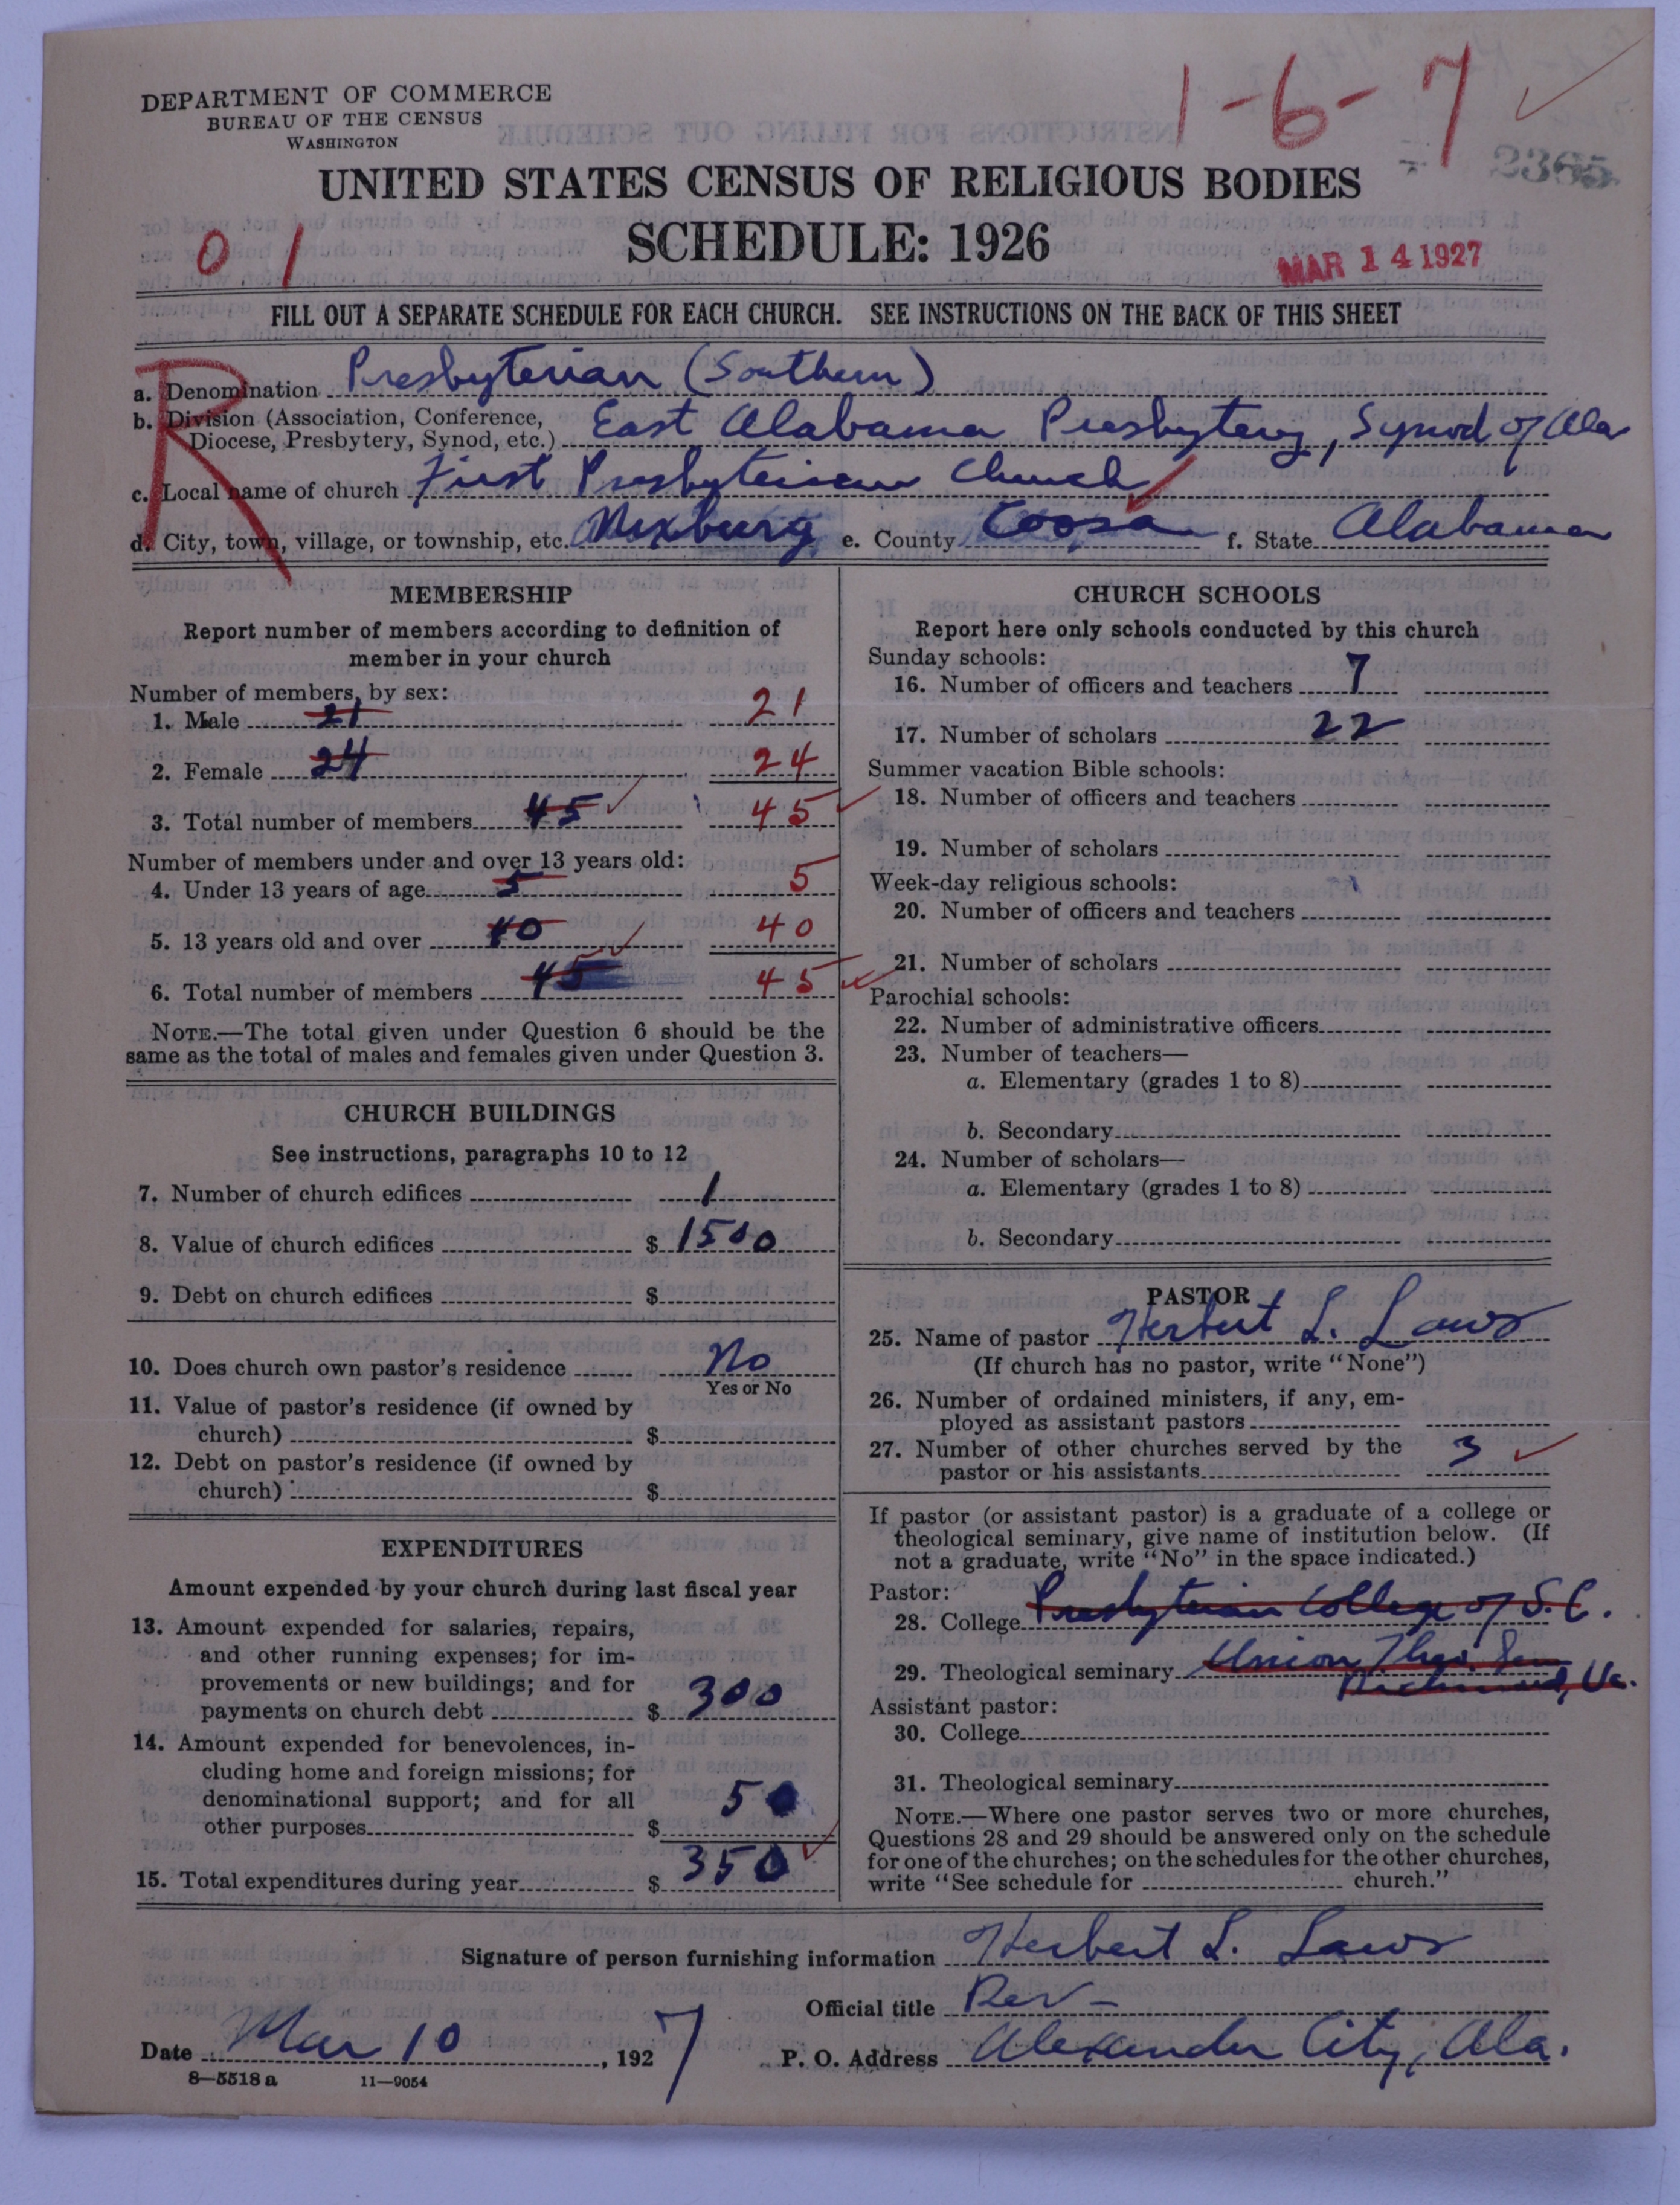 1-6-7
DEPARTMENT OF COMMERCE
BUREAU OF THE CENSUS
WASHINGTON
2365
UNITED STATES CENSUS OF RELIGIOUS BODIES
SCHEDULE: 1926
0 1
MAR 14 1927
FILL OUT A SEPARATE SCHEDULE FOR EACH CHURCH. SEE INSTRUCTIONS ON THE BACK OF THIS SHEET
R
a. Denomination Presbyterian (Southern)
b. Division (Association, Conference,
Diocese, Presbytery, Synod, etc.) East Alabama Presbytery, Synod of Ala
c. Local name of church First Presbyterian Church
d. City, town, village, or township, etc. Nixburg e. County Coosa f. State Alabama
MEMBERSHIP
Report number of members according to definition of
member in your church
Number of members, by sex:
1. Male 21 21
2. Female 24 24
3. Total number of members 45 45
Number of members under and over 13 years old:
4. Under 13 years of age 5 5
5. 13 years old and over 40 40
6. Total number of members 45 45
NOTE.—The total given under Question 6 should be the
same as the total of males and females given under Question 3.
CHURCH BUILDINGS
See instructions, paragraphs 10 to 12
7. Number of church edifices 1
8. Value of church edifices $ 1500
9. Debt on church edifices $
10. Does church own pastor's residence No
Yes or No
11. Value of pastor's residence (if owned by
church) $
12. Debt on pastor's residence (if owned by
church) $
EXPENDITURES
Amount expended by your church during last fiscal year
13. Amount expended for salaries, repairs,
and other running expenses; for im-
provements or new buildings; and for
payments on church debt $ 300
14. Amount expended for benevolences, in-
cluding home and foreign missions; for
denominational support; and for all
other purposes $ 50
15. Total expenditures during year $ 350
CHURCH SCHOOLS
Report here only schools conducted by this church
Sunday schools:
16. Number of officers and teachers 7
17. Number of scholars 22
Summer vacation Bible schools:
18. Number of officers and teachers
19. Number of scholars
Week-day religious schools:
20. Number of officers and teachers
21. Number of scholars
Parochial schools:
22. Number of administrative officers
23. Number of teachers—
a. Elementary (grades 1 to 8)
b. Secondary
24. Number of scholars—
a. Elementary (grades 1 to 8)
b. Secondary
PASTOR
25. Name of pastor Herbert L. Laws
(If church has no pastor, write "None")
26. Number of ordained ministers, if any, em-
ployed as assistant pastors
27. Number of other churches served by the
pastor or his assistants 3
If pastor (or assistant pastor) is a graduate of a college or
theological seminary, give name of institution below. (If
not a graduate, write "No" in the space indicated.)
Pastor:
28. College Presbyterian College of S.C.
29. Theological seminary Union Theo. Sem
Richmond, Va.
Assistant pastor:
30. College
31. Theological seminary
NOTE.—Where one pastor serves two or more churches,
Questions 28 and 29 should be answered only on the schedule
for one of the churches; on the schedules for the other churches,
write "See schedule for church."
Signature of person furnishing information Herbert L. Laws
Official title Rev-
Date Mar 10, 1927 P. O. Address Alexander City, Ala.
8—5518 a 11—9054